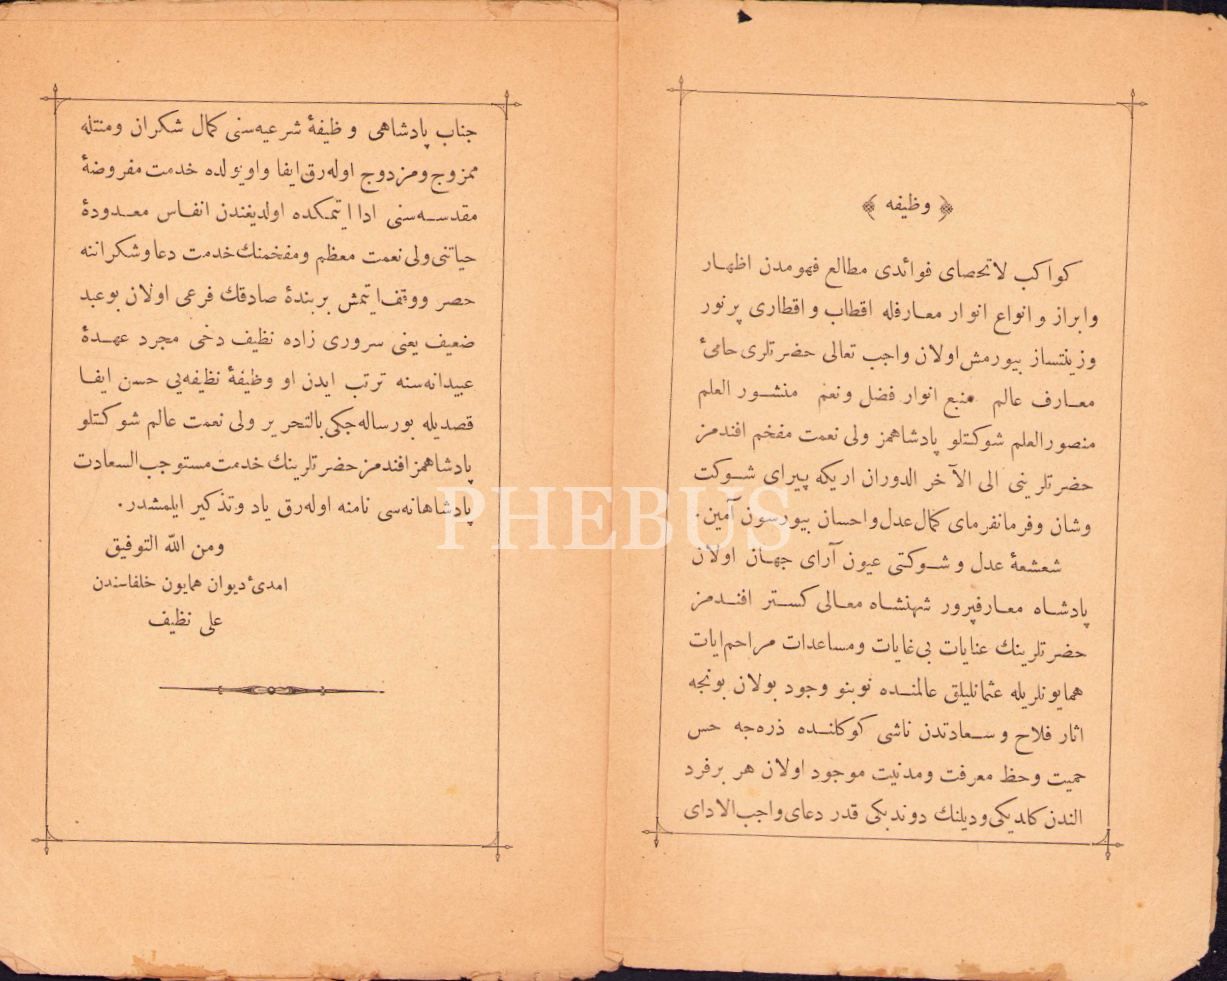 ﴿ وظیفه ﴾
كواكب لاتحصای فوائدی مطالع فهومدن اظهار
وابراز وانواع انوار معارفله اقطاب واقطاری پرنور
وزینتساز بیورمش اولان واجب تعالی حضرتلری حامیٔ
معارف عالم منبع انوار فضل ونعم منشور العلم
منصورالعلم شوكتلو پادشاهمز ولی نعمت مفخم افندمز
حضرتلرینی الی الآخر الدوران اریكه پیرای شوكت
وشان وفرمانفرمای كمال عدل واحسان بیورسون آمین.
شعشعهٔ عدل وشوكتی عیون آرای جهان اولان
پادشاه معارفپرور شهنشاه معالی كستر افندمز
حضرتلرینك عنایات بی غایات ومساعدات مراحم ایات
همایونلریله عثمانلیلق عالمنده نوبنو وجود بولان بونجه
اثار فلاح وسعادتدن ناشی كوكلنده ذره جه حس
حمیت وحظ معرفت ومدنیت موجود اولان هر برفرد
الندن كلدیكی ودیلنك دوندیكی قدر دعای واجب الادای
جناب پادشاهی وظیفهٔ شرعیه سنی كمال شكران ومنتله
ممزوج ومزدوج اوله رق ایفا واویولده خدمت مفروضهٔ
مقدسه سنی ادا ایتمكده اولدیغندن انفاس معدودهٔ
حیاتنی ولی نعمت معظم ومفخمنك خدمت دعا وشكراننه
حصر ووقف ایتمش بر بندهٔ صادقك فرعی اولان بوعبد
ضعیف یعنی سروری زاده نظیف دخی مجرد عهدهٔ
عبیدانه سنه ترتب ایدن او وظیفهٔ نظیفه یی حسن ایفا
قصدیله بورساله جكی بالتحریر ولی نعمت عالم شوكتلو
پادشاهمز افندمز حضرتلرینك خدمت مستوجب السعادت
پادشاهانه سی نامنه اوله رق یاد وتذكیر ایلمشدر.
ومن الله التوفیق
امدیٔ دیوان همایون خلفاسندن
علی نظیف
PHEBUS